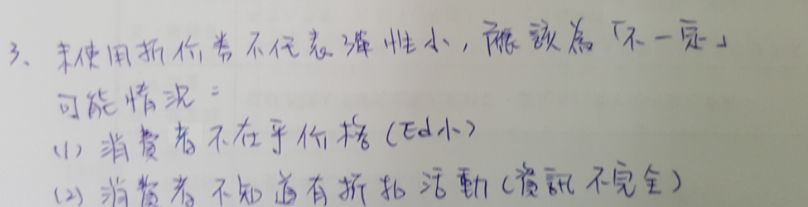 3、未使用折价券不代表彈性小，應該為「不一定」
可能情況：
(1) 消費者不在乎价格(Ed小)
(2) 消費者不知道有折扣活動(資訊不完全)